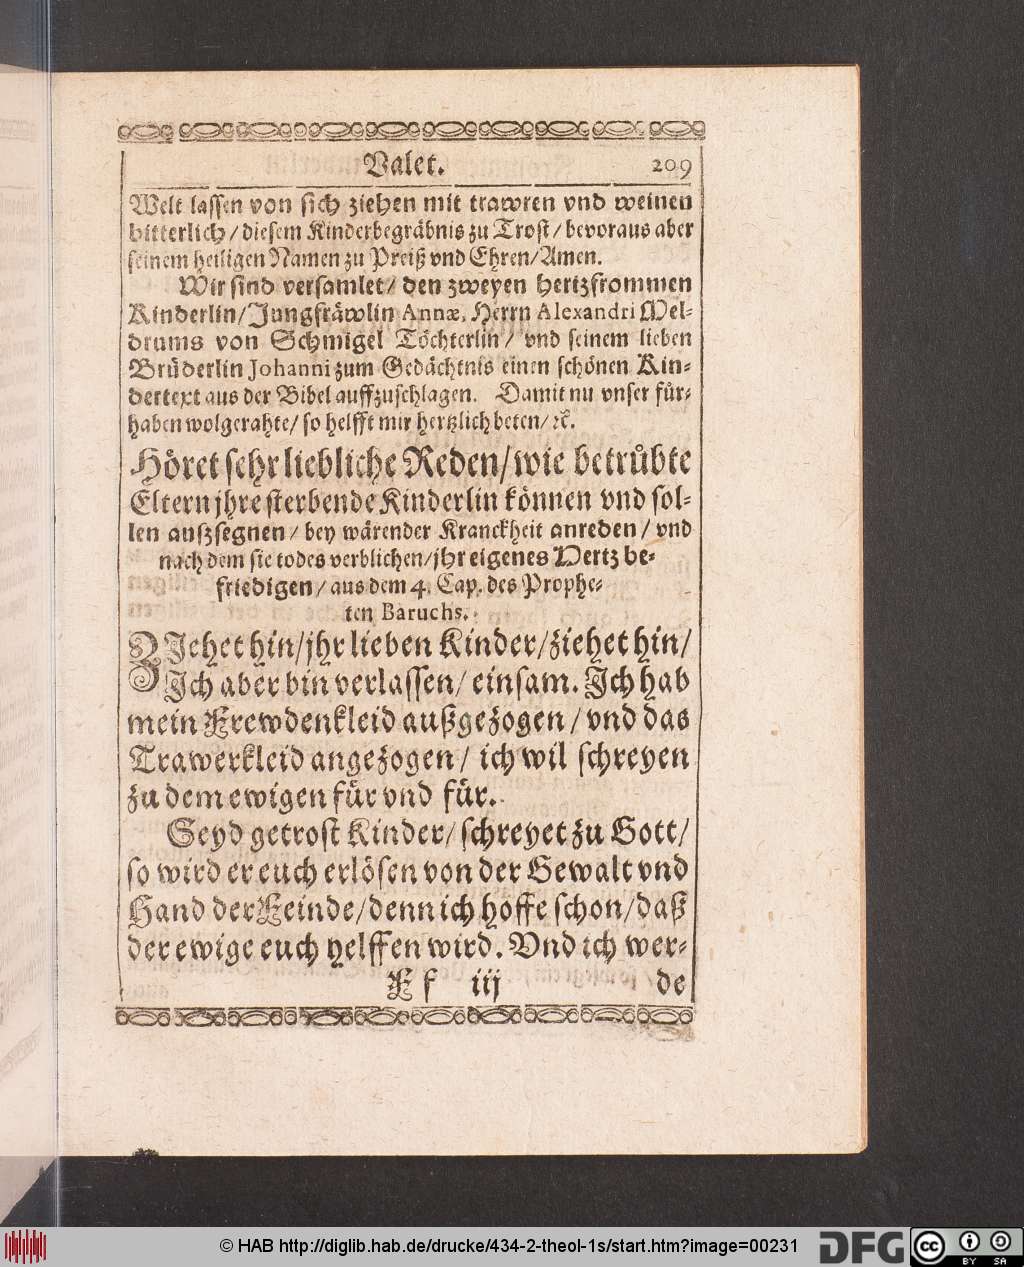 Valet. 209
Welt lassen von sich ziehen mit trawren vnd weinen
bitterlich/ diesem Kinderbegräbnis zu Trost/ bevoraus aber
seinem heiligen Namen zu Preiß vnd Ehren/ Amen.
Wir sind versamlet/ den zweyen hertzfrommen
Kinderlin/ Jungfräwlin Annæ, Herrn Alexandri Mel-
drums von Schmigel Töchterlin/ vnd seinem lieben
Brüderlin Johanni zum Gedächtnis einen schönen Kin-
dertext aus der Bibel auffzuschlagen. Damit nu vnser für-
haben wolgerahte/ so helfft mir hertzlich beten/ ꝛc.
Höret sehr liebliche Reden/ wie betrůbte
Eltern jhre sterbende Kinderlin können vnd sol-
len außsegnen/ bey wärender Kranckheit anreden/ vnd
nach dem sie todes verblichen/ jhr eigenes Hertz be-
friedigen/ aus dem 4. Cap. des Prophe-
ten Baruchs.
ZJehet hin/ jhr lieben Kinder/ ziehet hin/
Jch aber bin verlassen/ einsam. Jch hab
mein Frewdenkleid außgezogen/ vnd das
Trawerkleid angezogen/ ich wil schreyen
zu dem ewigen für vnd für.
Seyd getrost Kinder/ schreyet zu Gott/
so wird er euch erlösen von der Gewalt vnd
Hand der Feinde/ denn ich hoffe schon/ daß
der ewige euch helffen wird. Vnd ich wer-
F f iij de
© HAB http://diglib.hab.de/drucke/434-2-theol-1s/start.htm?image=00231
DFG
cc BY SA